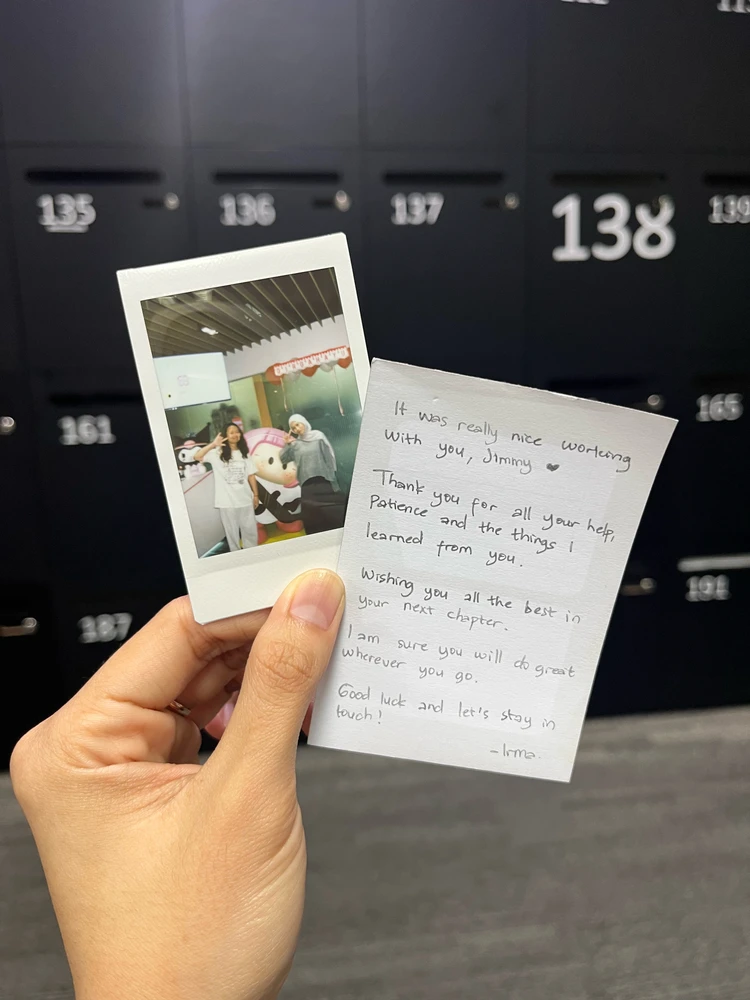 135
136
137
138
139
161
165
187
191
It was really nice working
with you, Jimmy ♥
Thank you for all your help,
Patience and the things I
learned from you.
Wishing you all the best in
your next chapter.
I am sure you will do great
wherever you go.
Good luck and let's stay in
touch!
- Irma.